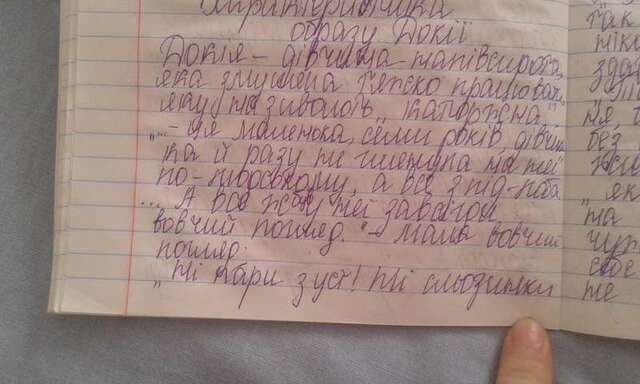 Характеристика
образу Докії
Докія – дівчина-напівсирота,
яка змушена тяжко працювати,
яку називають „Каторжна"
„... – Ця маленька, семи років, дівчин-
ка й разу не глянула на неї
по-людському, а все з-під лоба
... А все жде неї завсігди
вовчий погляд." – мала вовчий
погляд.
„Ні пари з уст! Ні сльозинки
так
без
як
на
чуж
своє
же